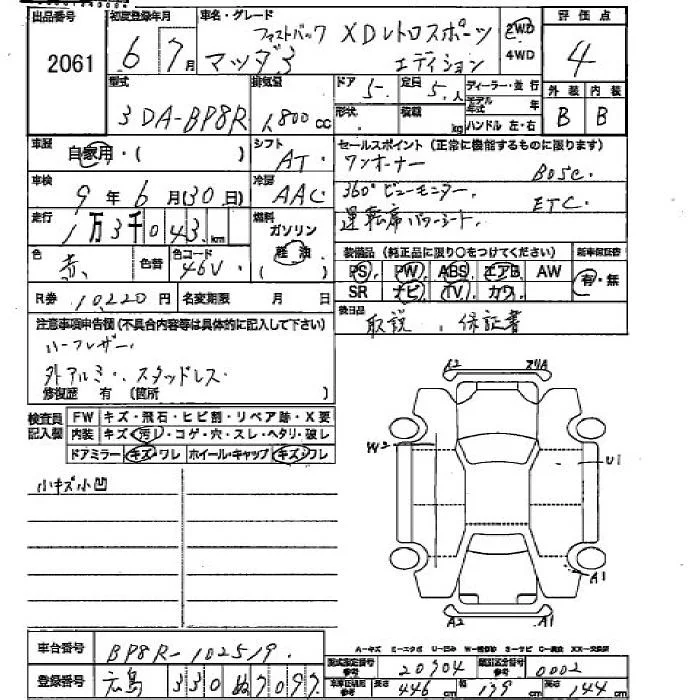 出品番号 初度登録年月 車名・グレード 評価点
2061 6年7月 ファストバック XDレトロスポーツ 2WD 4
マツダ3 エディション 4WD
型式 排気量 ドア 定員 ディーラー・並行 外装 内装
3DA-BP8R 1,800cc 5 5人 モデル年式 年 B B
形状 積載 kg ハンドル 左・右
車歴 自家用・( ) シフト AT セールスポイント (正常に機能するものに限ります)
ワンオーナー BOSE.
車検 9年6月(30日) 冷房 AAC 360°ビューモニター. ETC.
走行 1万3千043km 燃料 ガソリン 軽油 ( ) 運転席パワーシート.
色 赤 色替 色コード 46V 装備品 (純正品に限り○をつけてください) 新車保証書
PS PW ABS エアB AW 有・無
SR ナビ TV カワ
R券 10,220円 名変期限 月 日 後日品
取説. 保証書
注意事項申告欄(不具合内容等は具体的に記入して下さい)
ハーフレザー.
外アルミ・スタッドレス.
修復歴 有 (箇所 )
検査員記入欄 FW キズ・飛石・ヒビ割・リペア跡・X要
内装 キズ・汚し・コゲ・穴・スレ・ヘタリ・破レ
ドアミラー キズ・ワレ ホイール・キャップ キズ・ワレ
小キズ小凹
A2
W2
U1
A1
A2 A1
車台番号 BP8R-102519
登録番号 広島 330 ぬ 7097
型式指定番号 20904 類別区分番号 0002
長さ 446cm 幅 179cm 高さ 144cm